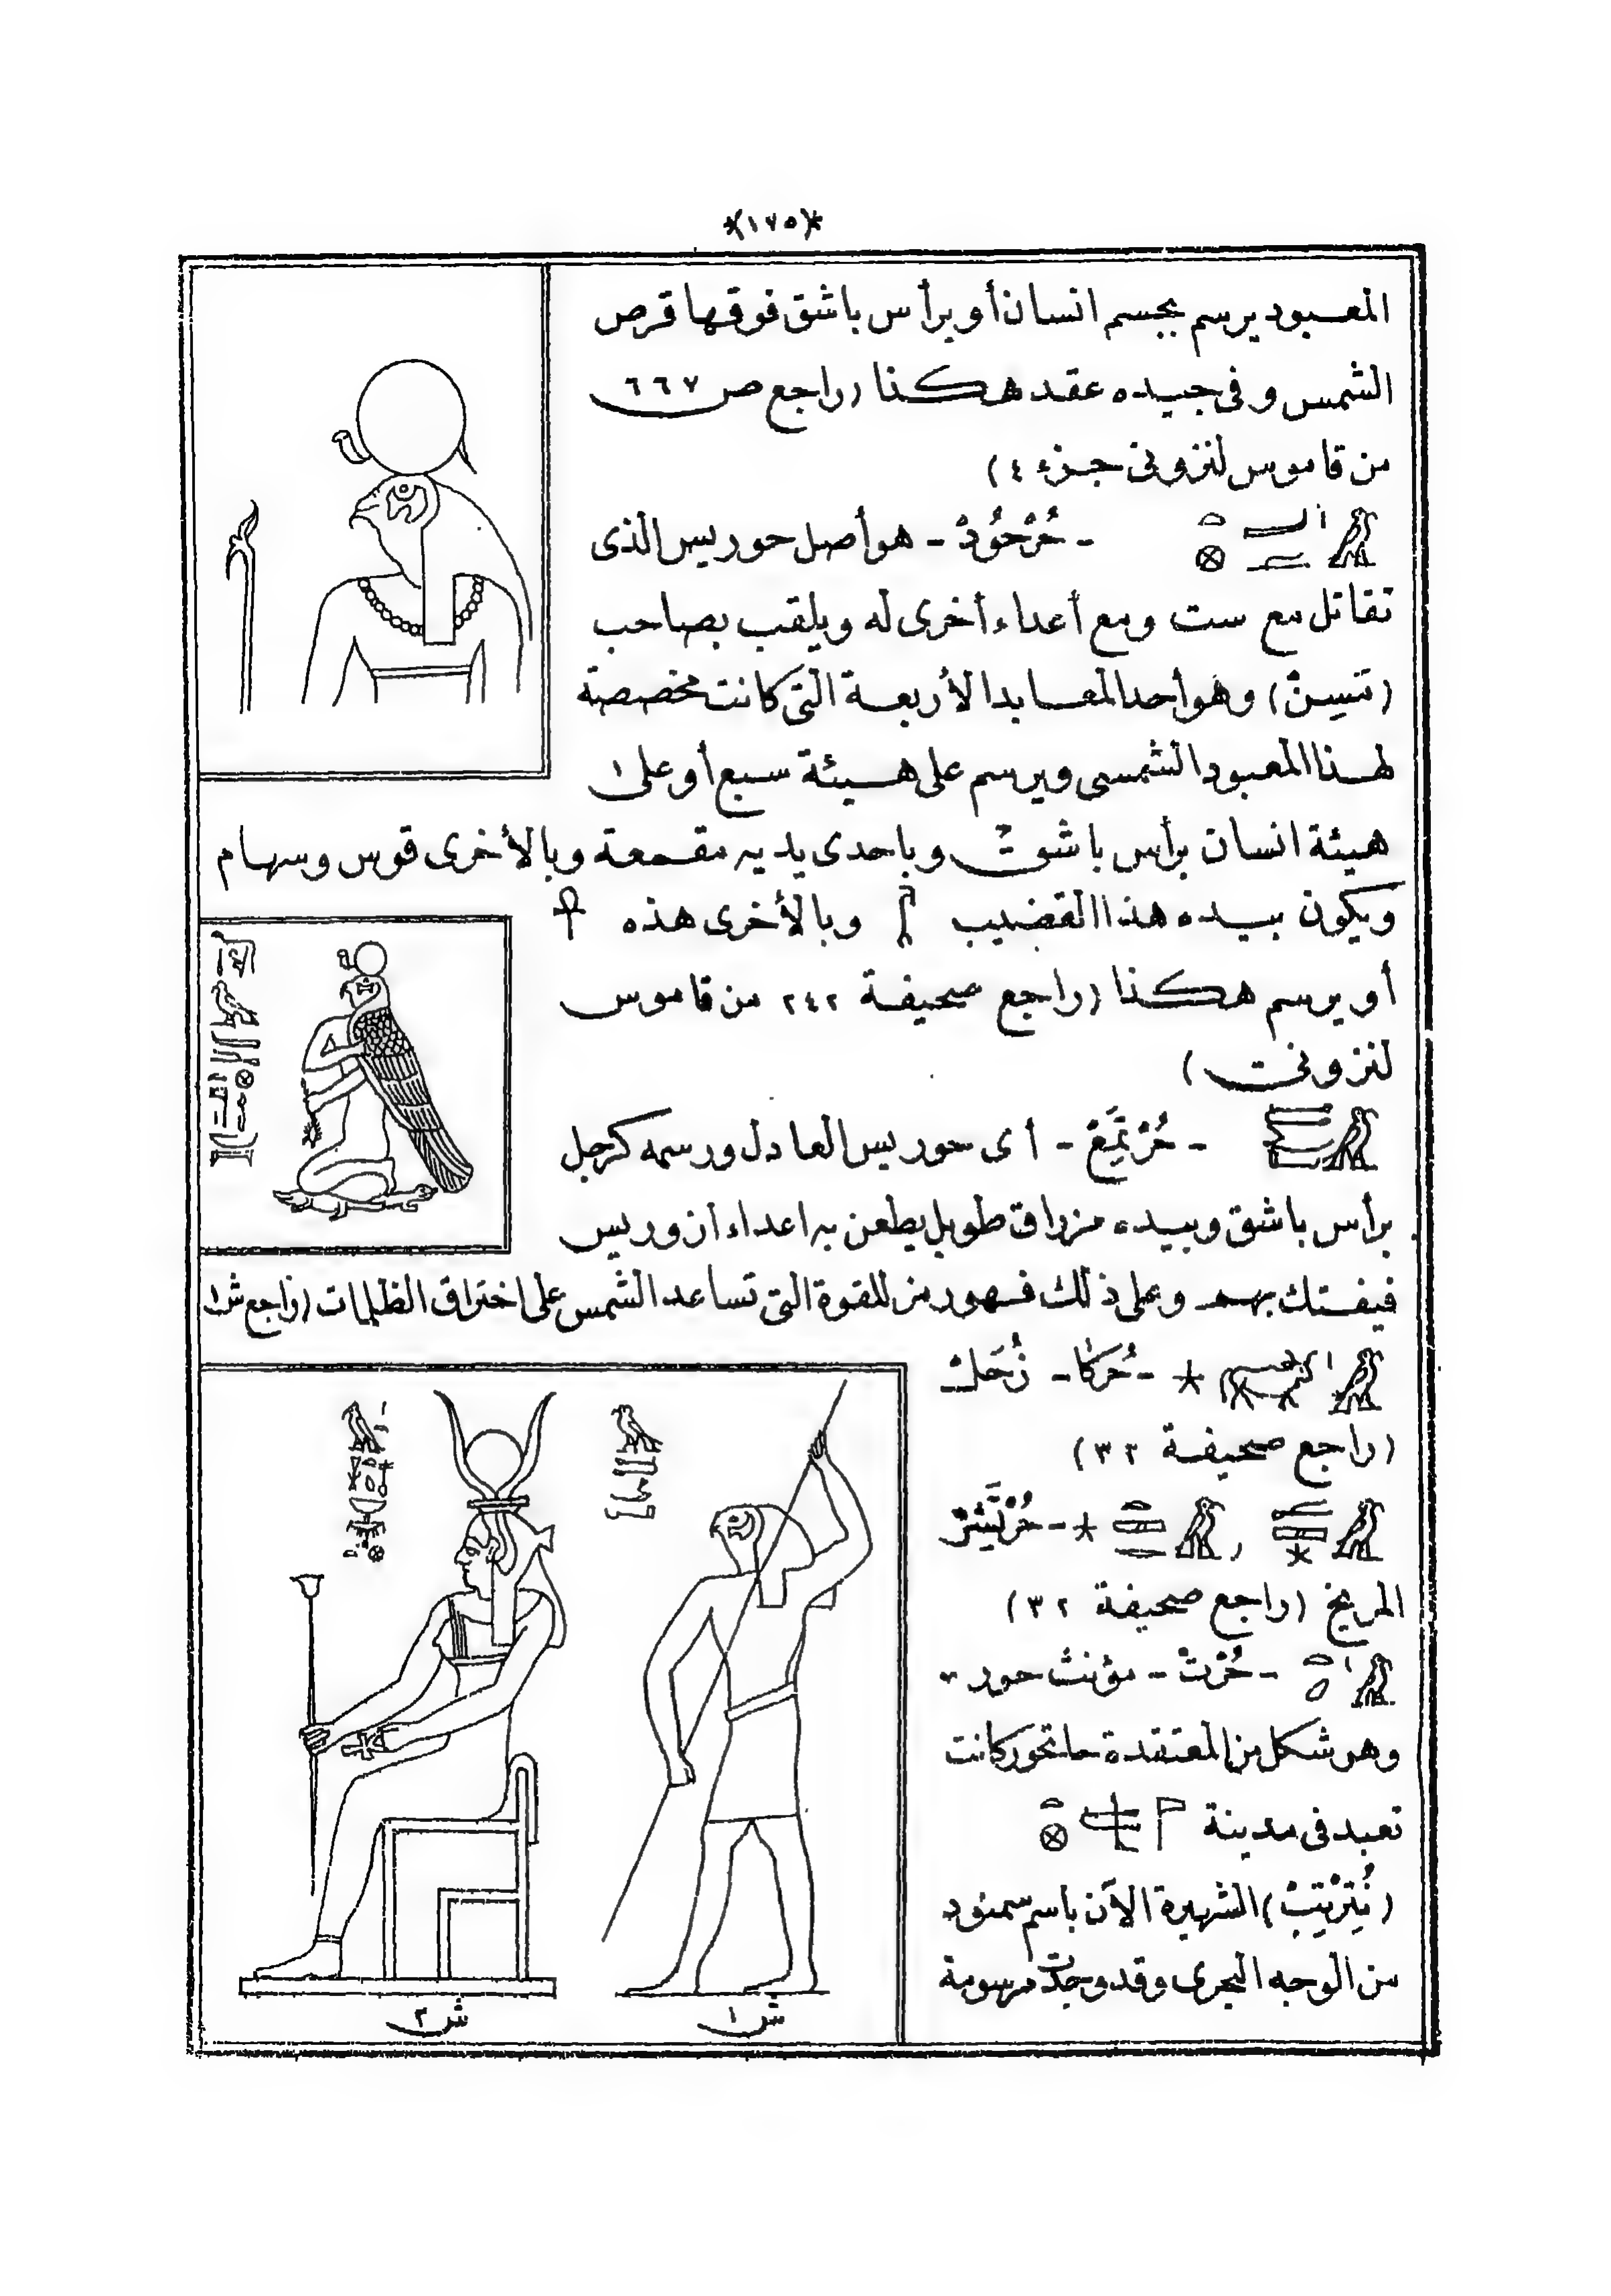 *(١٧٥)*
المعبود يرسم بجسم انسان أو برأس باشق فوقها قرص
الشمس وفى جيده عقد هكذا (راجع ص ٦٦٧
من قاموس لنزونى جزء ٤)
- حُرْحُودْ - هو أصل حوريس الذى
تقاتل مع ست ومع أعداء أخرى له ويلقب بصاحب
(تسِنْ) وهو أحد المعابد الأربعة التى كانت مخصصة
لهذا المعبود الشمسى ويرسم على هيئة سبع أو على
هيئة انسان برأس باشق وباحدى يديه مقمعة وبالأخرى قوس وسهام
ويكون بيده هذا القضيب وبالأخرى هذه
أو يرسم هكذا (راجع صحيفة ٢٤٢ من قاموس
لنزونى)
- حُرْتَمِعْ - أى حوريس العادل ورسمه كرجل
برأس باشق وبيده مزراق طويل يطعن به اعداء ازوريس
فيفتك بهم وعلى ذلك فهو رمز للقوة التى تساعد الشمس على اختراق الظلمات (راجع ش ١
- حُركَا - زُحَل
(راجع صحيفة ٣٢)
- حُرْتَشِرْ
المريخ (راجع صحيفة ٣٢)
- حُرْتْ - مؤنث حور -
وهى شكل من المعتقدة حاتحور كانت
تعبد فى مدينة
(نُتِرْتِبْ) الشهيرة الآن باسم سمنود
من الوجه البحرى وقد وجدت مرسومة
ش ١
ش ٢